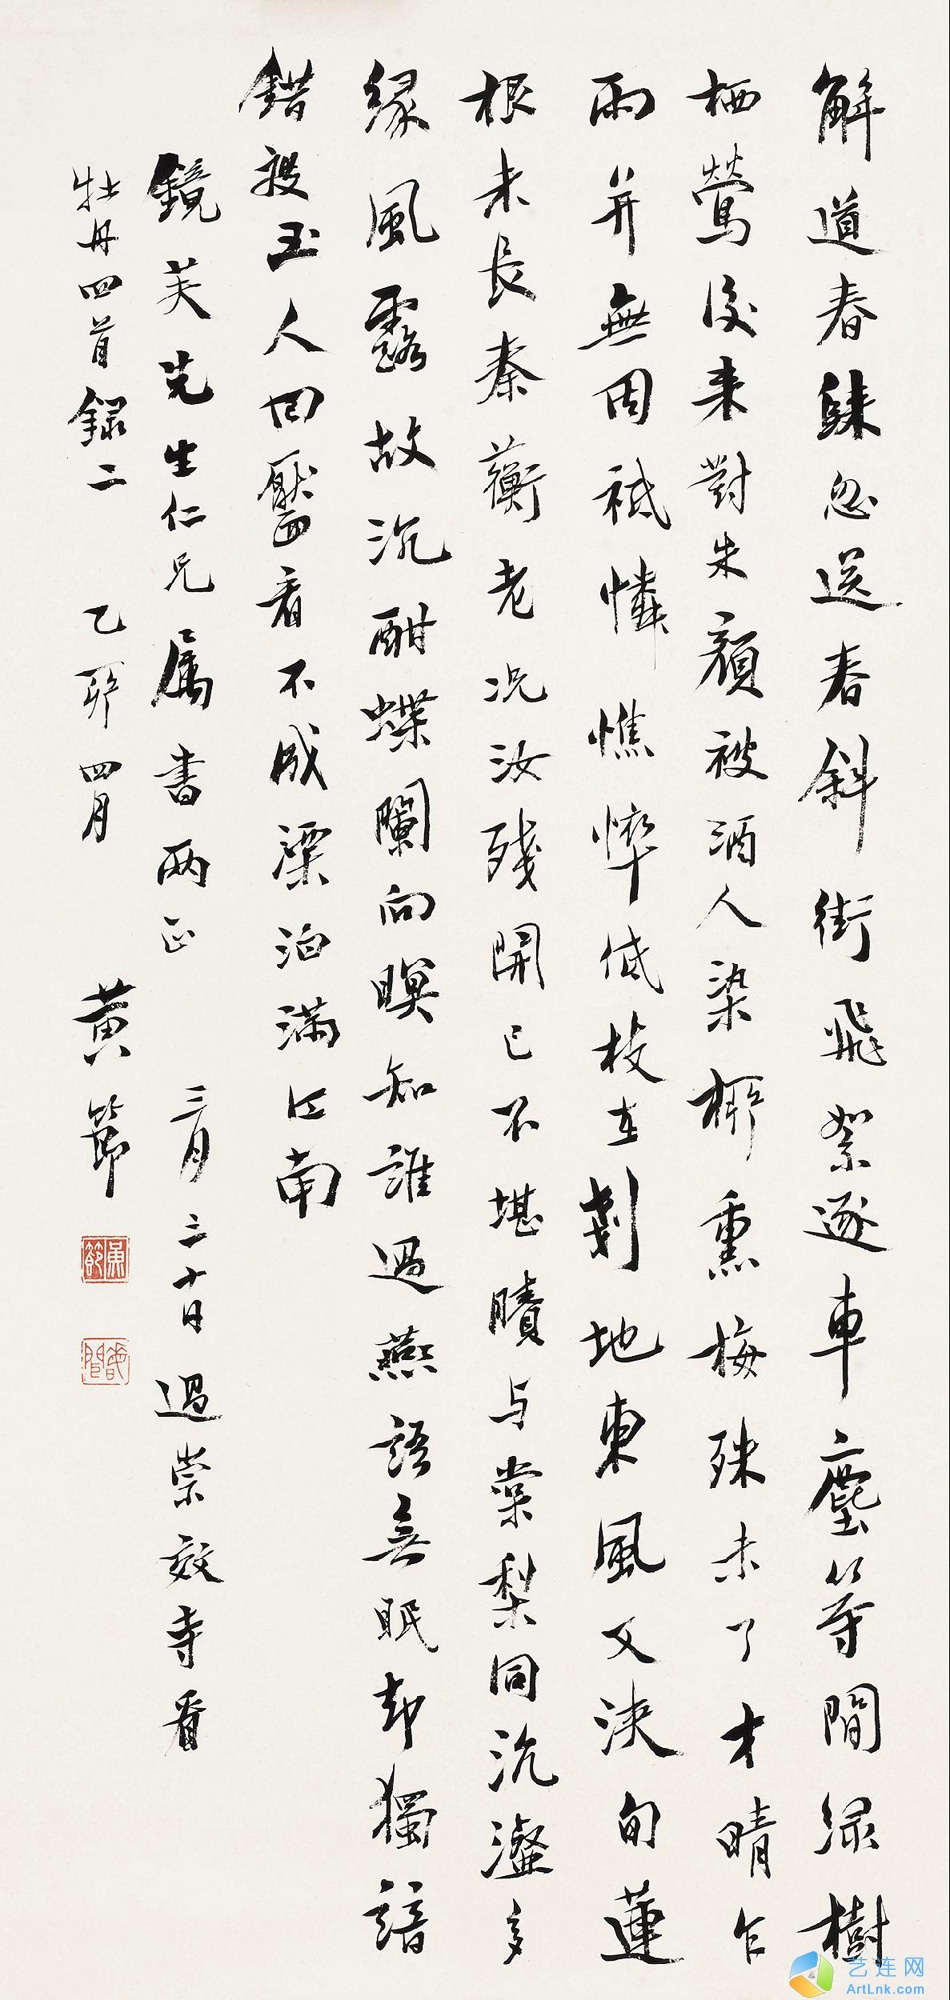 解道春忽送春斜街飛絮逐車塵等閒綠樹
栖鶯後來對朱顏被酒人染柳熏梅殊未了才晴乍
雨并無因祗憐憔悴低枝在剗地東風又浹旬蓮
根未長秦蘅老况汝殘開已不堪賸与棠梨同沆瀣多
緣風露故沉酣蝶闌向暝知誰過燕語無眠却獨諳
錯被玉人回靨看不成漂泊滿江南
鏡芙先生仁兄属書两正 三月二十日過崇效寺看
牡丹四首録二 乙卯四月 黃節
黃節
艺连网
ArtLnk.com